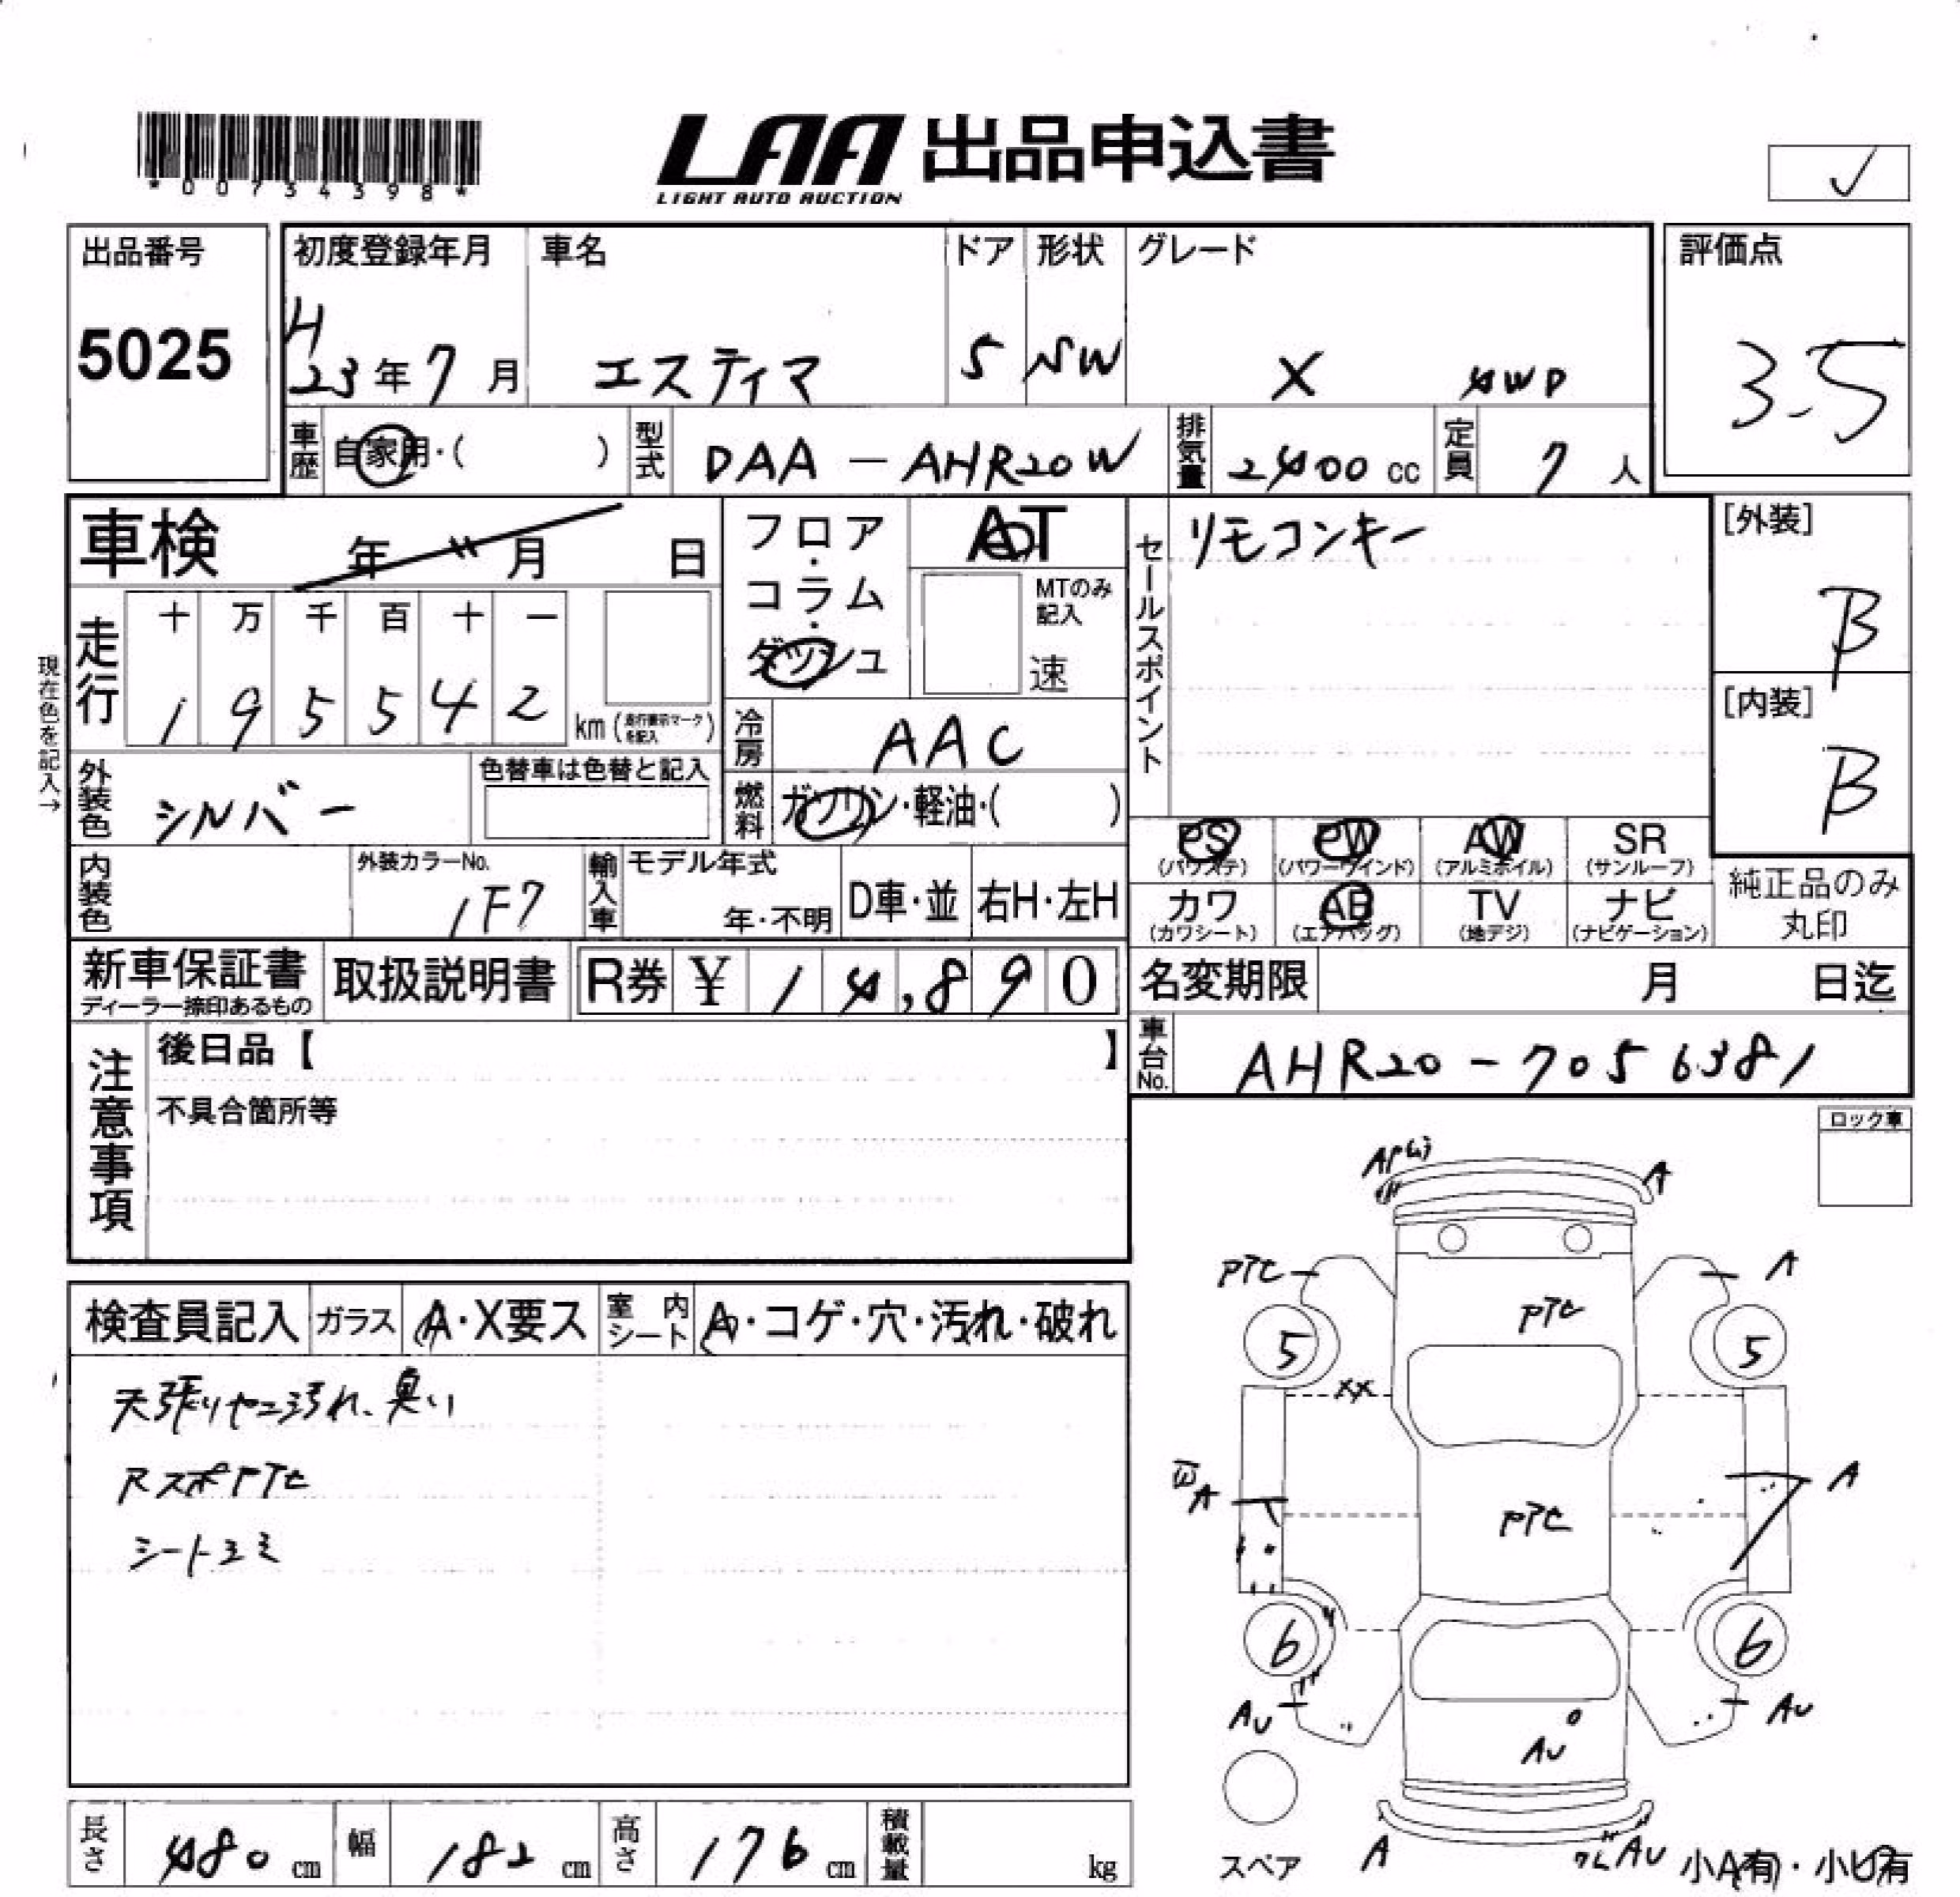 *00734398*
LAA 出品申込書
LIGHT AUTO AUCTION
✓
出品番号
5025
初度登録年月
H
23年7月
車名
エスティマ
ドア
5
形状
SW
グレード
X 4WD
評価点
3.5
車歴
自家用・( )
型式
DAA-AHR20W
排気量
2400cc
定員
7人
車検 年 月 日
走行
十 万 千 百 十 一
1 9 5 5 4 2
km(走行表示マークを記入)
現在色を記入→
フロア・コラム・ダッシュ
AT
MTのみ記入
速
冷房
AAC
セールスポイント
リモコンキー
[外装]
B
[内装]
B
外装色
シルバー
色替車は色替と記入
燃料
ガソリン・軽油・( )
内装色
外装カラーNo.
1F7
輸入車
モデル年式
年・不明
D車・並
右H・左H
PS
(パワステ)
PW
(パワーウインド)
AW
(アルミホイル)
SR
(サンルーフ)
カワ
(カワシート)
AB
(エアバッグ)
TV
(地デジ)
ナビ
(ナビゲーション)
純正品のみ
丸印
新車保証書
ディーラー捺印あるもの
取扱説明書
R券 ¥14,890
名変期限 月 日迄
車台No.
AHR20-7056381
注意事項
後日品【 】
不具合箇所等
ロック車
検査員記入
ガラス
A・X要ス
室内シート
A・コゲ・穴・汚れ・破れ
天張りヤニ汚れ、臭い
RスポPTC
シートヨミ
A
PTC
A
PTC
5
5
XX
A
A
PTC
6
6
AU
AU
AU
A
AU
スペア
小A有・小U有
長さ
480cm
幅
182cm
高さ
176cm
積載量
kg